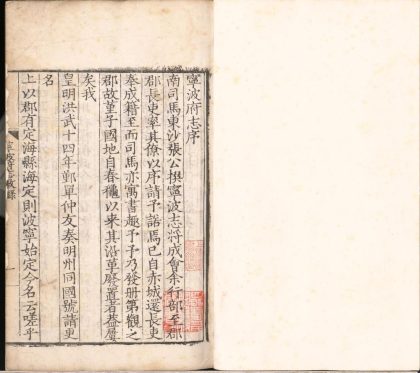 寧波府志序
南司馬東沙張公撰寧波志將成會余行部至郡
郡長吏率其僚以序請予諾焉已自赤城還長吏
奉成籍至而司馬亦寓書趣予予乃發冊第觀之
郡故菫子國地自春穐以來其沿革廢置者益屢
矣我
皇明洪武十四年鄞單仲友奏明州同國號請更
名
上以郡有定海縣海定則波寧始定今名云嗟乎